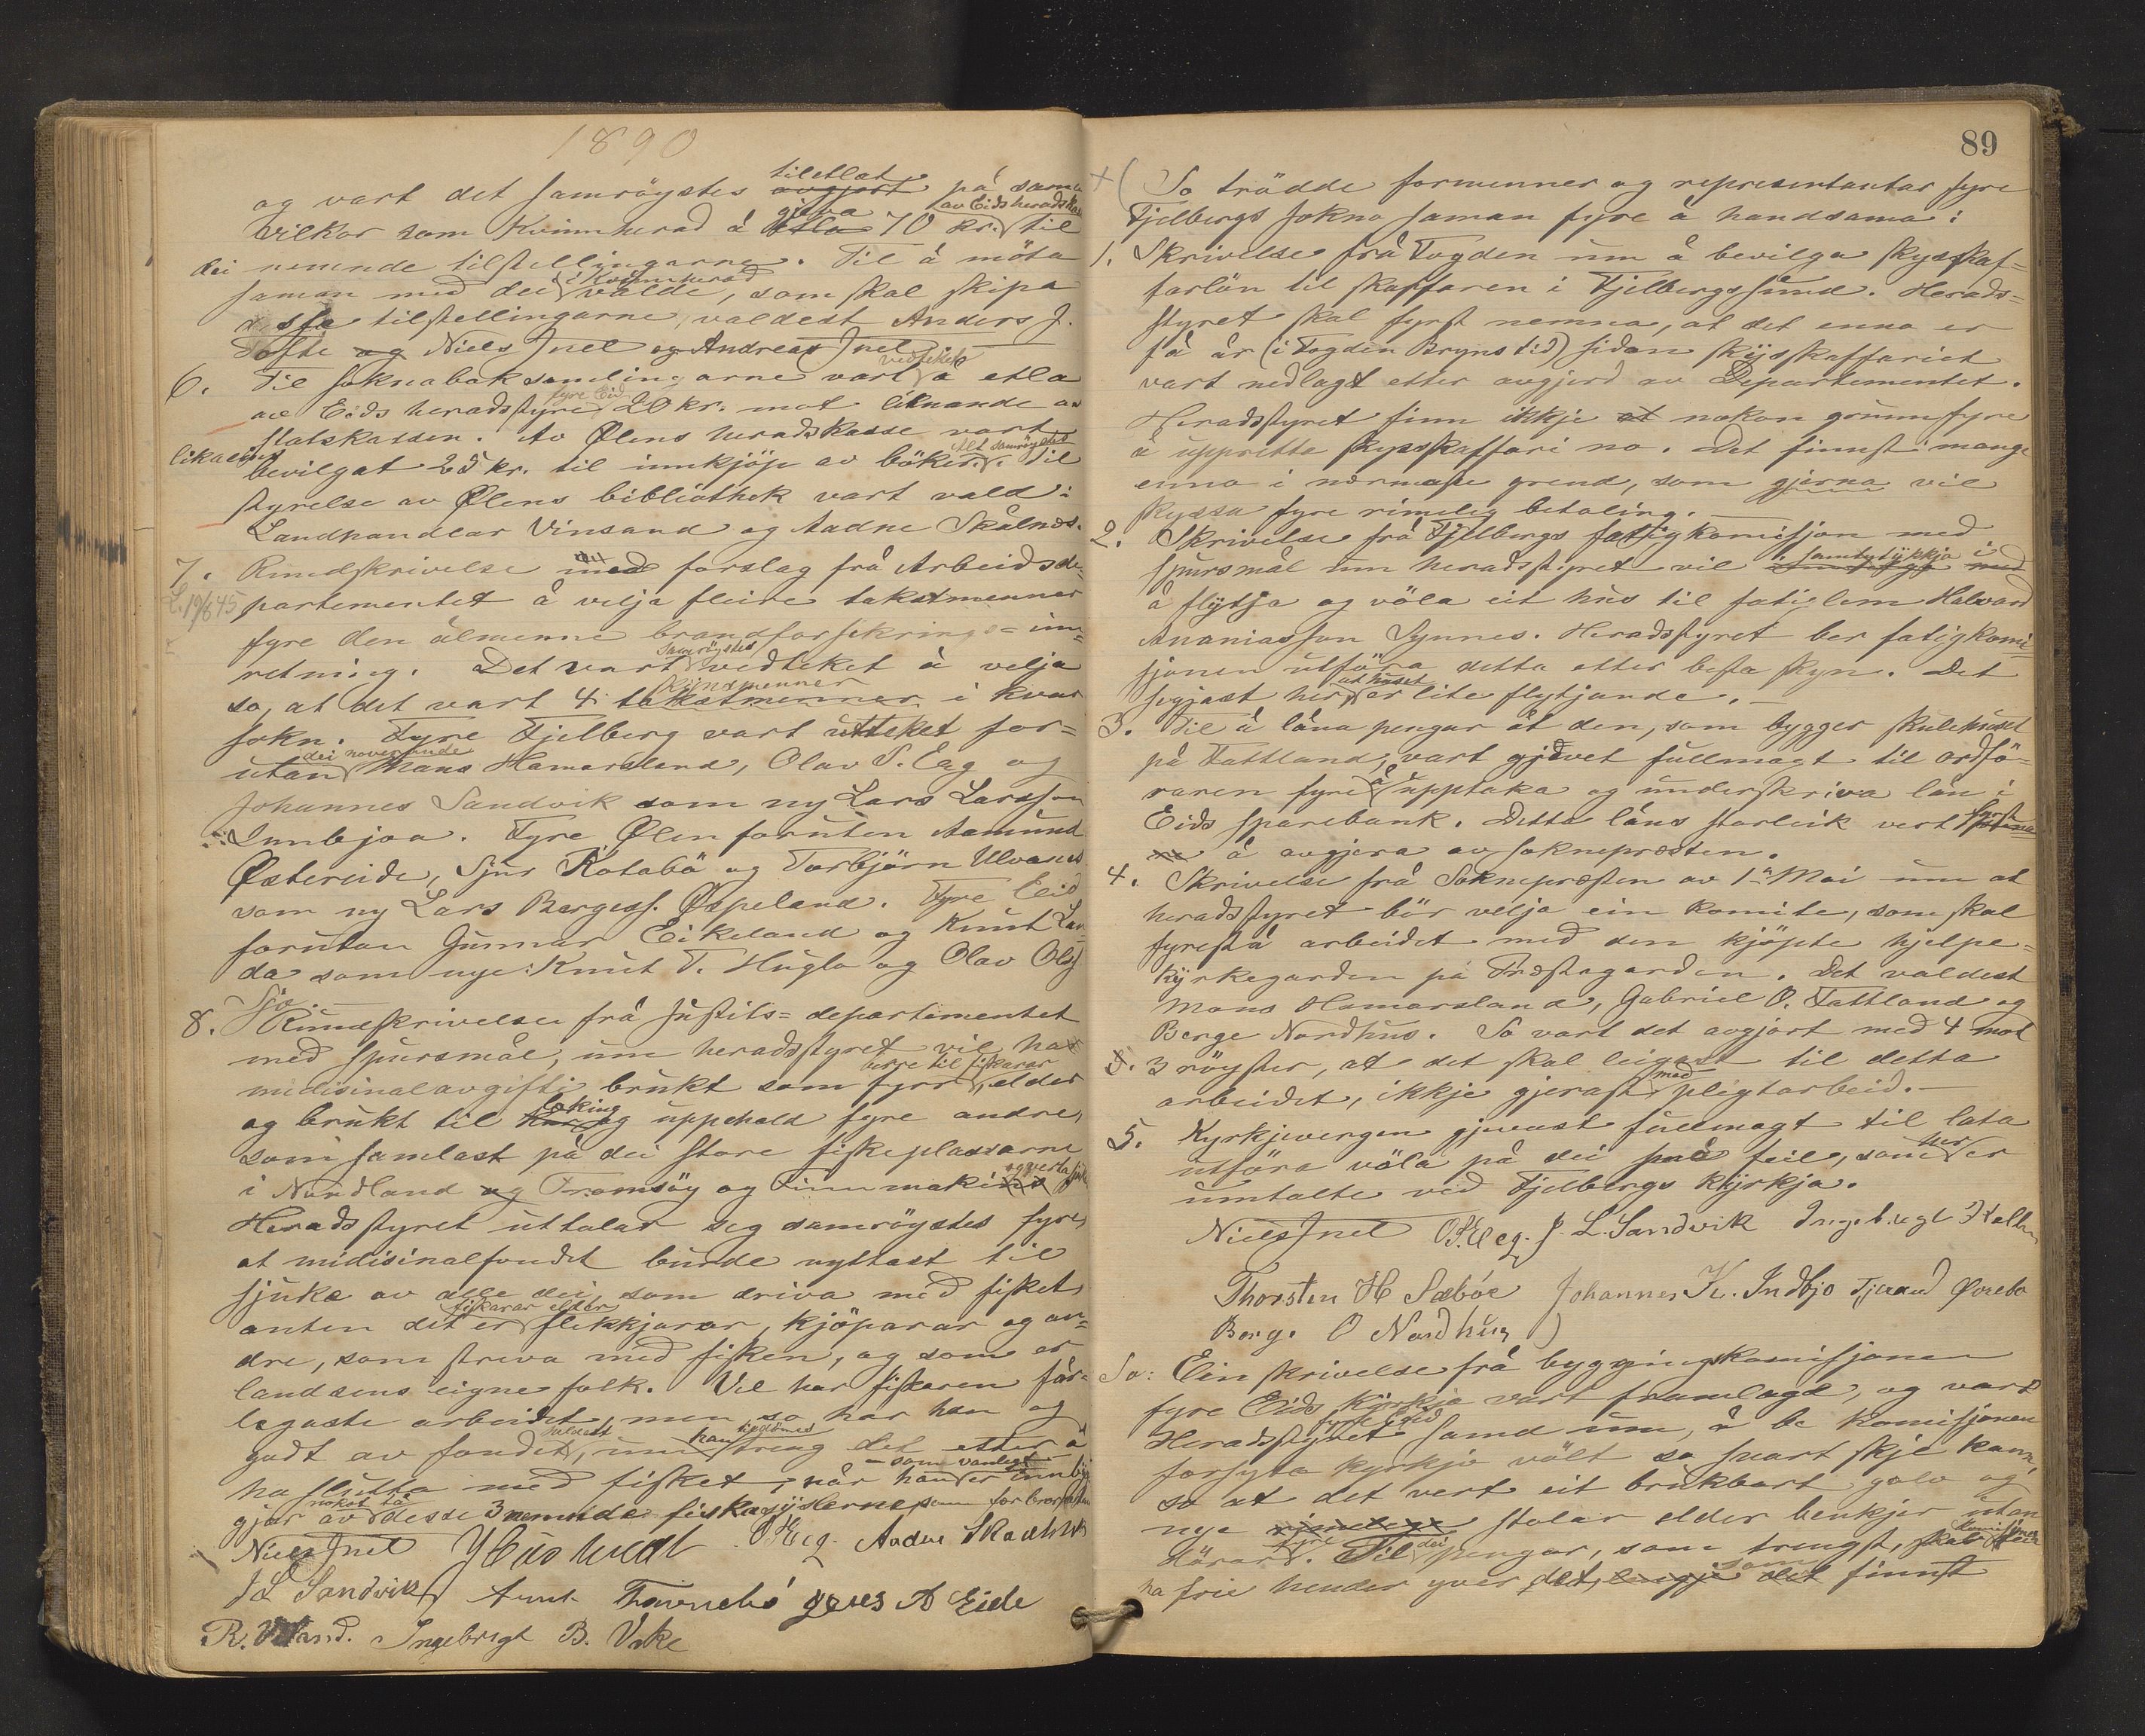 1890
og vart det samröystes tiletlat på sama
vilkor som Kvinnherad å gjeva 70 kr. av Eids heradskasse til
dei nemnde tilstellingarne. Til å möta
saman med dei i Kvinnherad valde, som skal skipa
desse tilstellingarne, valdest Anders J.
Tofte og Niels Jnel og Andreas Jnel.
6. Til soknaboksamlingarne vart vedteket å etla
av Eids heradstyre fyre Eid 20 kr. mot liknande av
statskassen. Av Ølens heradskasse vart
likaeins bevilgat 25 kr. til innkjöp av böker. Alt samröystes. Til
styrelse av Ølens bibliothek vart vald:
Landhandlar Vinsand og Aadne Skålnes.
7. Rundskrivelse med forslag frå Arbeidsde-
L. 19/6 45 partementet å velja fleire takstmenner
fyre den ålmenne brandforsekrings-inn-
retning. Det vart samröystes vedteket å velja
so, at det vart 4 skjönsmenner takstmenner i kvar
sokn. Fyre Fjelberg vart utteket for-
utan dei noverande Mans Hamarsland, Olav S. Eag og
Johannes Sandvik som ny Lars Larsson
Innbjoa. Fyre Ølen foruten Aamund
Østereide, Sjur Kotabö og Torbjörn Ulvanes
som ny Lars Bargess. Øspeland. Fyre Eid
forutan Gunnar Eikeland og Knut Lan-
da som nye: Knut T. Hugla og Olav Olss.
Sjo.
8. Rundskrivelse frå Justits-departementet
med spursmål, um heradsstyret vil ha
midisinalavgifti brukt som fyrr berre til fiskarar, elder
og brukt til læking og uppehald fyre andre,
som samlast på dei store fiskeplassarne
i Nordland og Tromsöy og Finnmarki
Heradsstyret uttalar seg samröystes fyre,
at midisinalfondet burde nyttast til
sjuke av alle dei, som driva med fisket,
anten det er fiskarar elder flekkjarar, kjöparar og an-
dre, som streva med fisken, og som er
landsens eigne folk. Vel har fiskaren får-
legaste arbeidet, men so har han og
godt av fondet, um han treng det etter å
ha slutta med fisket, når han er innbyg-
gjar av nokot tå desse 3 nemnde fiskasyslerne
Niels Jnel J Hus O S Eeg. Aadne Skaalnes
J L Sandvik A. Eide
R. Ingebrigt B. Vike

89
So trödde formenner og representantar fyre
Fjelbergs sokna saman fyre å handsama:
1. Skrivelse frå Fogden um å bevilga skysskaf-
farlön til skaffaren i Fjelbergssund. Herads-
styret skal fyrst nemna, at det enno er
få år (i Fogden Bryns tid) sidan skysskaffariet
vart nedlagt etter avgjerd av Departementet.
Heradsstyret finn ikkje at nokon grunn fyre
å uppretta skysskaffari no. Det finnst mange
enno i nærmaste grend, som gjerna vil
skyssa fyre rimeleg betaling. —
2. Skrivelse frå Fjelbergs fatigkomisjon med
spursmål um heradsstyret vil samtykkja i
å flytja og völa eit hus til fatiglem Halvard
Ananiasson Synnes. Heradsstyret ber fatigkomi-
sjonen utföra detta etter beste skyn. Det
segjast her, at huset er lite flytjande. —
3. Til å låna pengar åt den, som bygger skulehuset
på Fattland, vart gjevet fullmagt til ordfö-
raren fyre å upptaka og underskriva lån i
Eids sparebank. Detta låns storleik vert fyrst
å avgjera av soknepresten.
4. Skrivelse frå Soknepresten av 1. Mai um at
heradsstyret bör velja ein komite, som skal
fyrestå arbeidet med den kjöpte hjelpe-
kyrkegarden på Prestagarden. Det valdest
Mons Hamarsland, Gabriel O. Fattland og
Berge Nordhus. So vart det avgjort med 4 mot
3 röyster, at det skal leigast til detta
arbeidet, ikkje gjerast med pligtarbeid. —
5. Kyrkjevergen gjevast fullmagt til lata
utföra völa på dei feil, som her er
umtalte ved Fjelbergs kyrkja.
Niels Jnel O S. Eeg. J. L. Sandvik Ingebrigt
Thorsten H Sæbøe Johannes K. Indbjo Tjerand Øvrebø
Berge O Nordhus)
So: Ein skrivelse frå byggingskomisjonen
fyre Eids kyrkja vart framlagd, og vart
Heradsstyret fyre Eid samd um, å be komisjonen
forsyta kyrkja vält so snart skje kann,
so at det vert eit brukbart golv og
nye stolar elder benkjer utan
dörar fyre. Til dei pengar, som trengst, skal komisjonen
ha frie hender yver det, som finnst